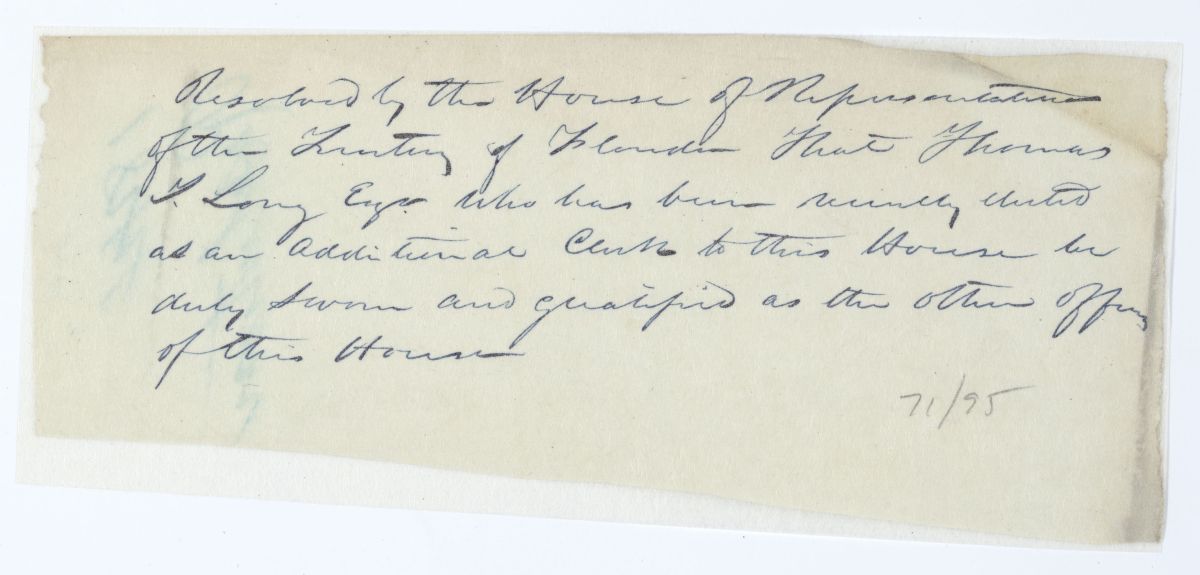 Resolved by the House of Representatives
of the Territory of Florida That Thomas
T. Long Esqr who has been recently elected
as an additional Clerk to this House be
duly sworn and qualified as the other officers
of this House
71/95